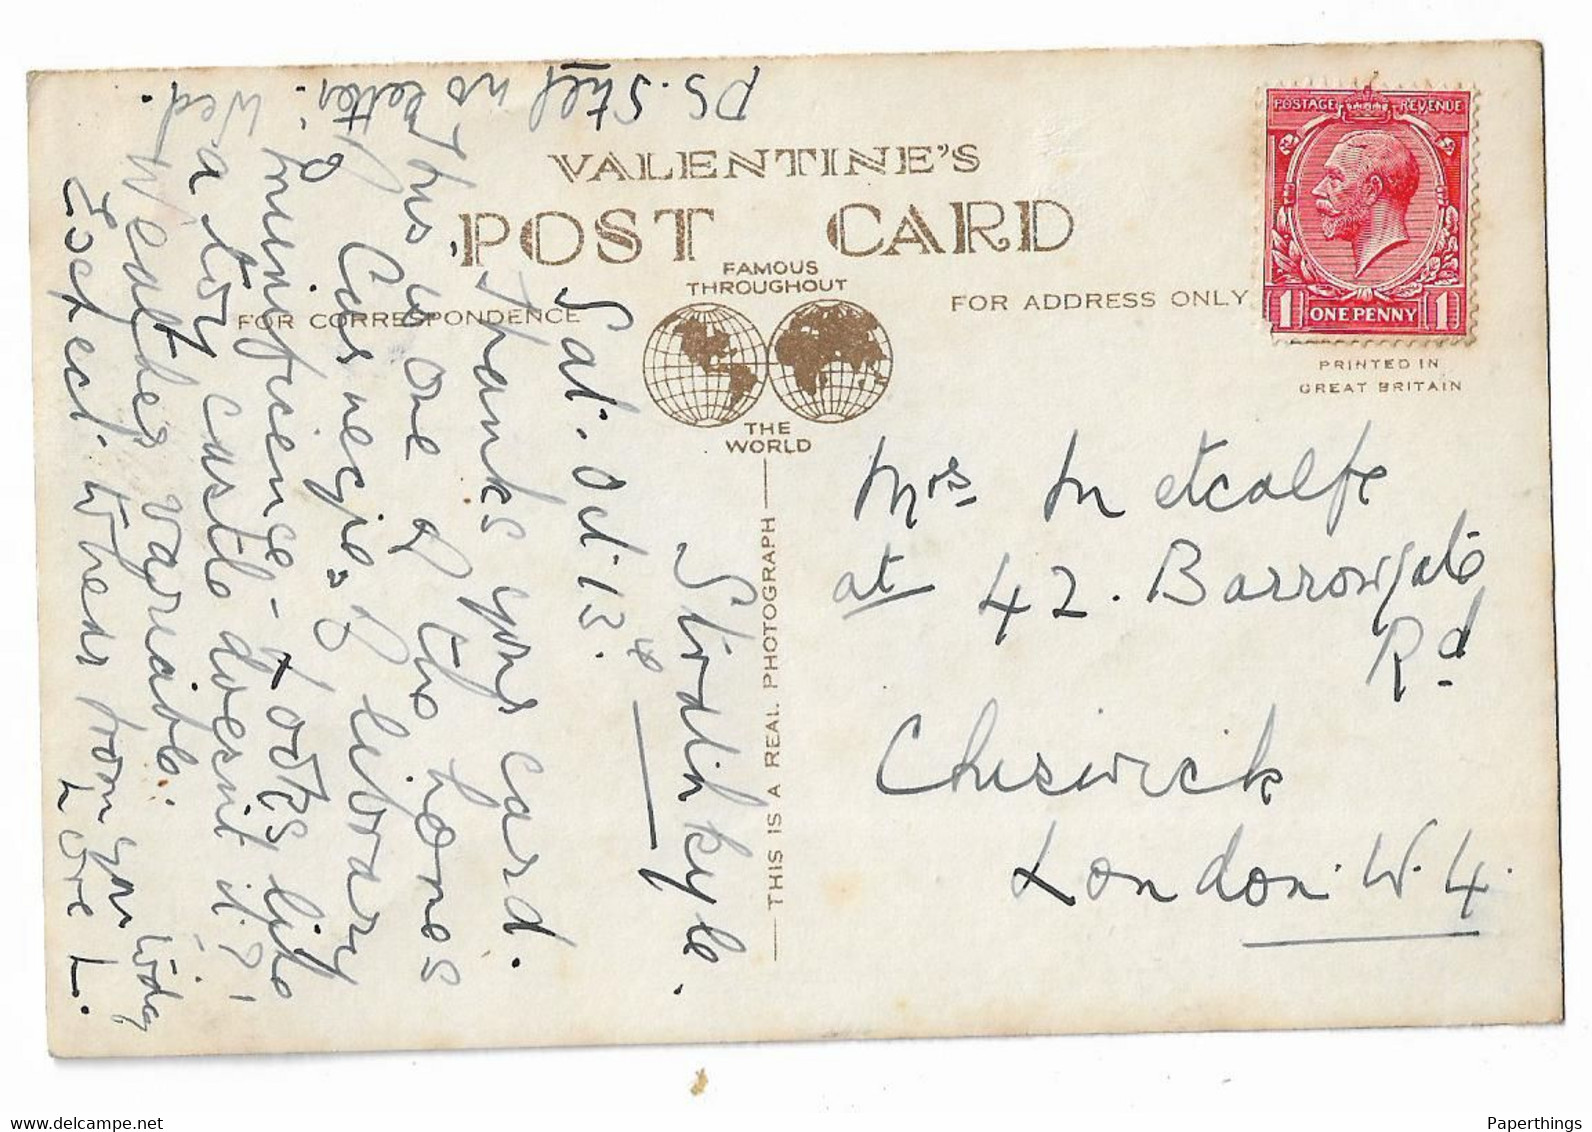 VALENTINE'S
POST CARD
FAMOUS
THROUGHOUT
THE
WORLD
FOR CORRESPONDENCE
FOR ADDRESS ONLY
POSTAGE REVENUE
1 ONE PENNY 1
PRINTED IN
GREAT BRITAIN
THIS IS A REAL PHOTOGRAPH
Sat. Oct. 13.
Thanks your card.
This is one of the homes
of Carnegie's library
munificence - looks like
a toy castle doesn't it?!
Weather variable.
Expect
from you today
Love L.
PS. Still no letter.
Wed.
Mrs Metcalfe
at 42. Barrowgate
Rd
Chiswick
London. W. 4.
Paperthings
www.delcampe.net